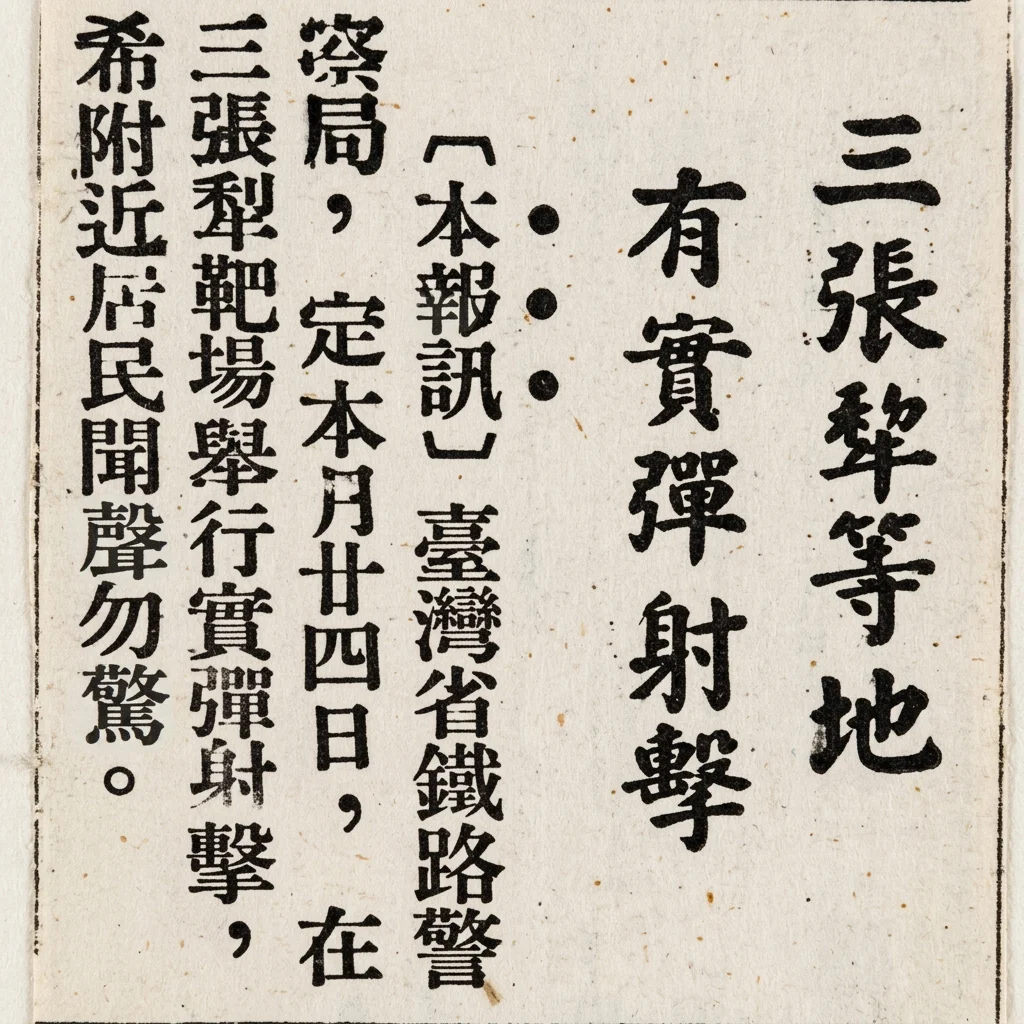 三張犁等地
有實彈射擊
●●●
〔本報訊〕臺灣省鐵路警
察局，定本月廿四日，在
三張犁靶場舉行實彈射擊，
希附近居民聞聲勿驚。